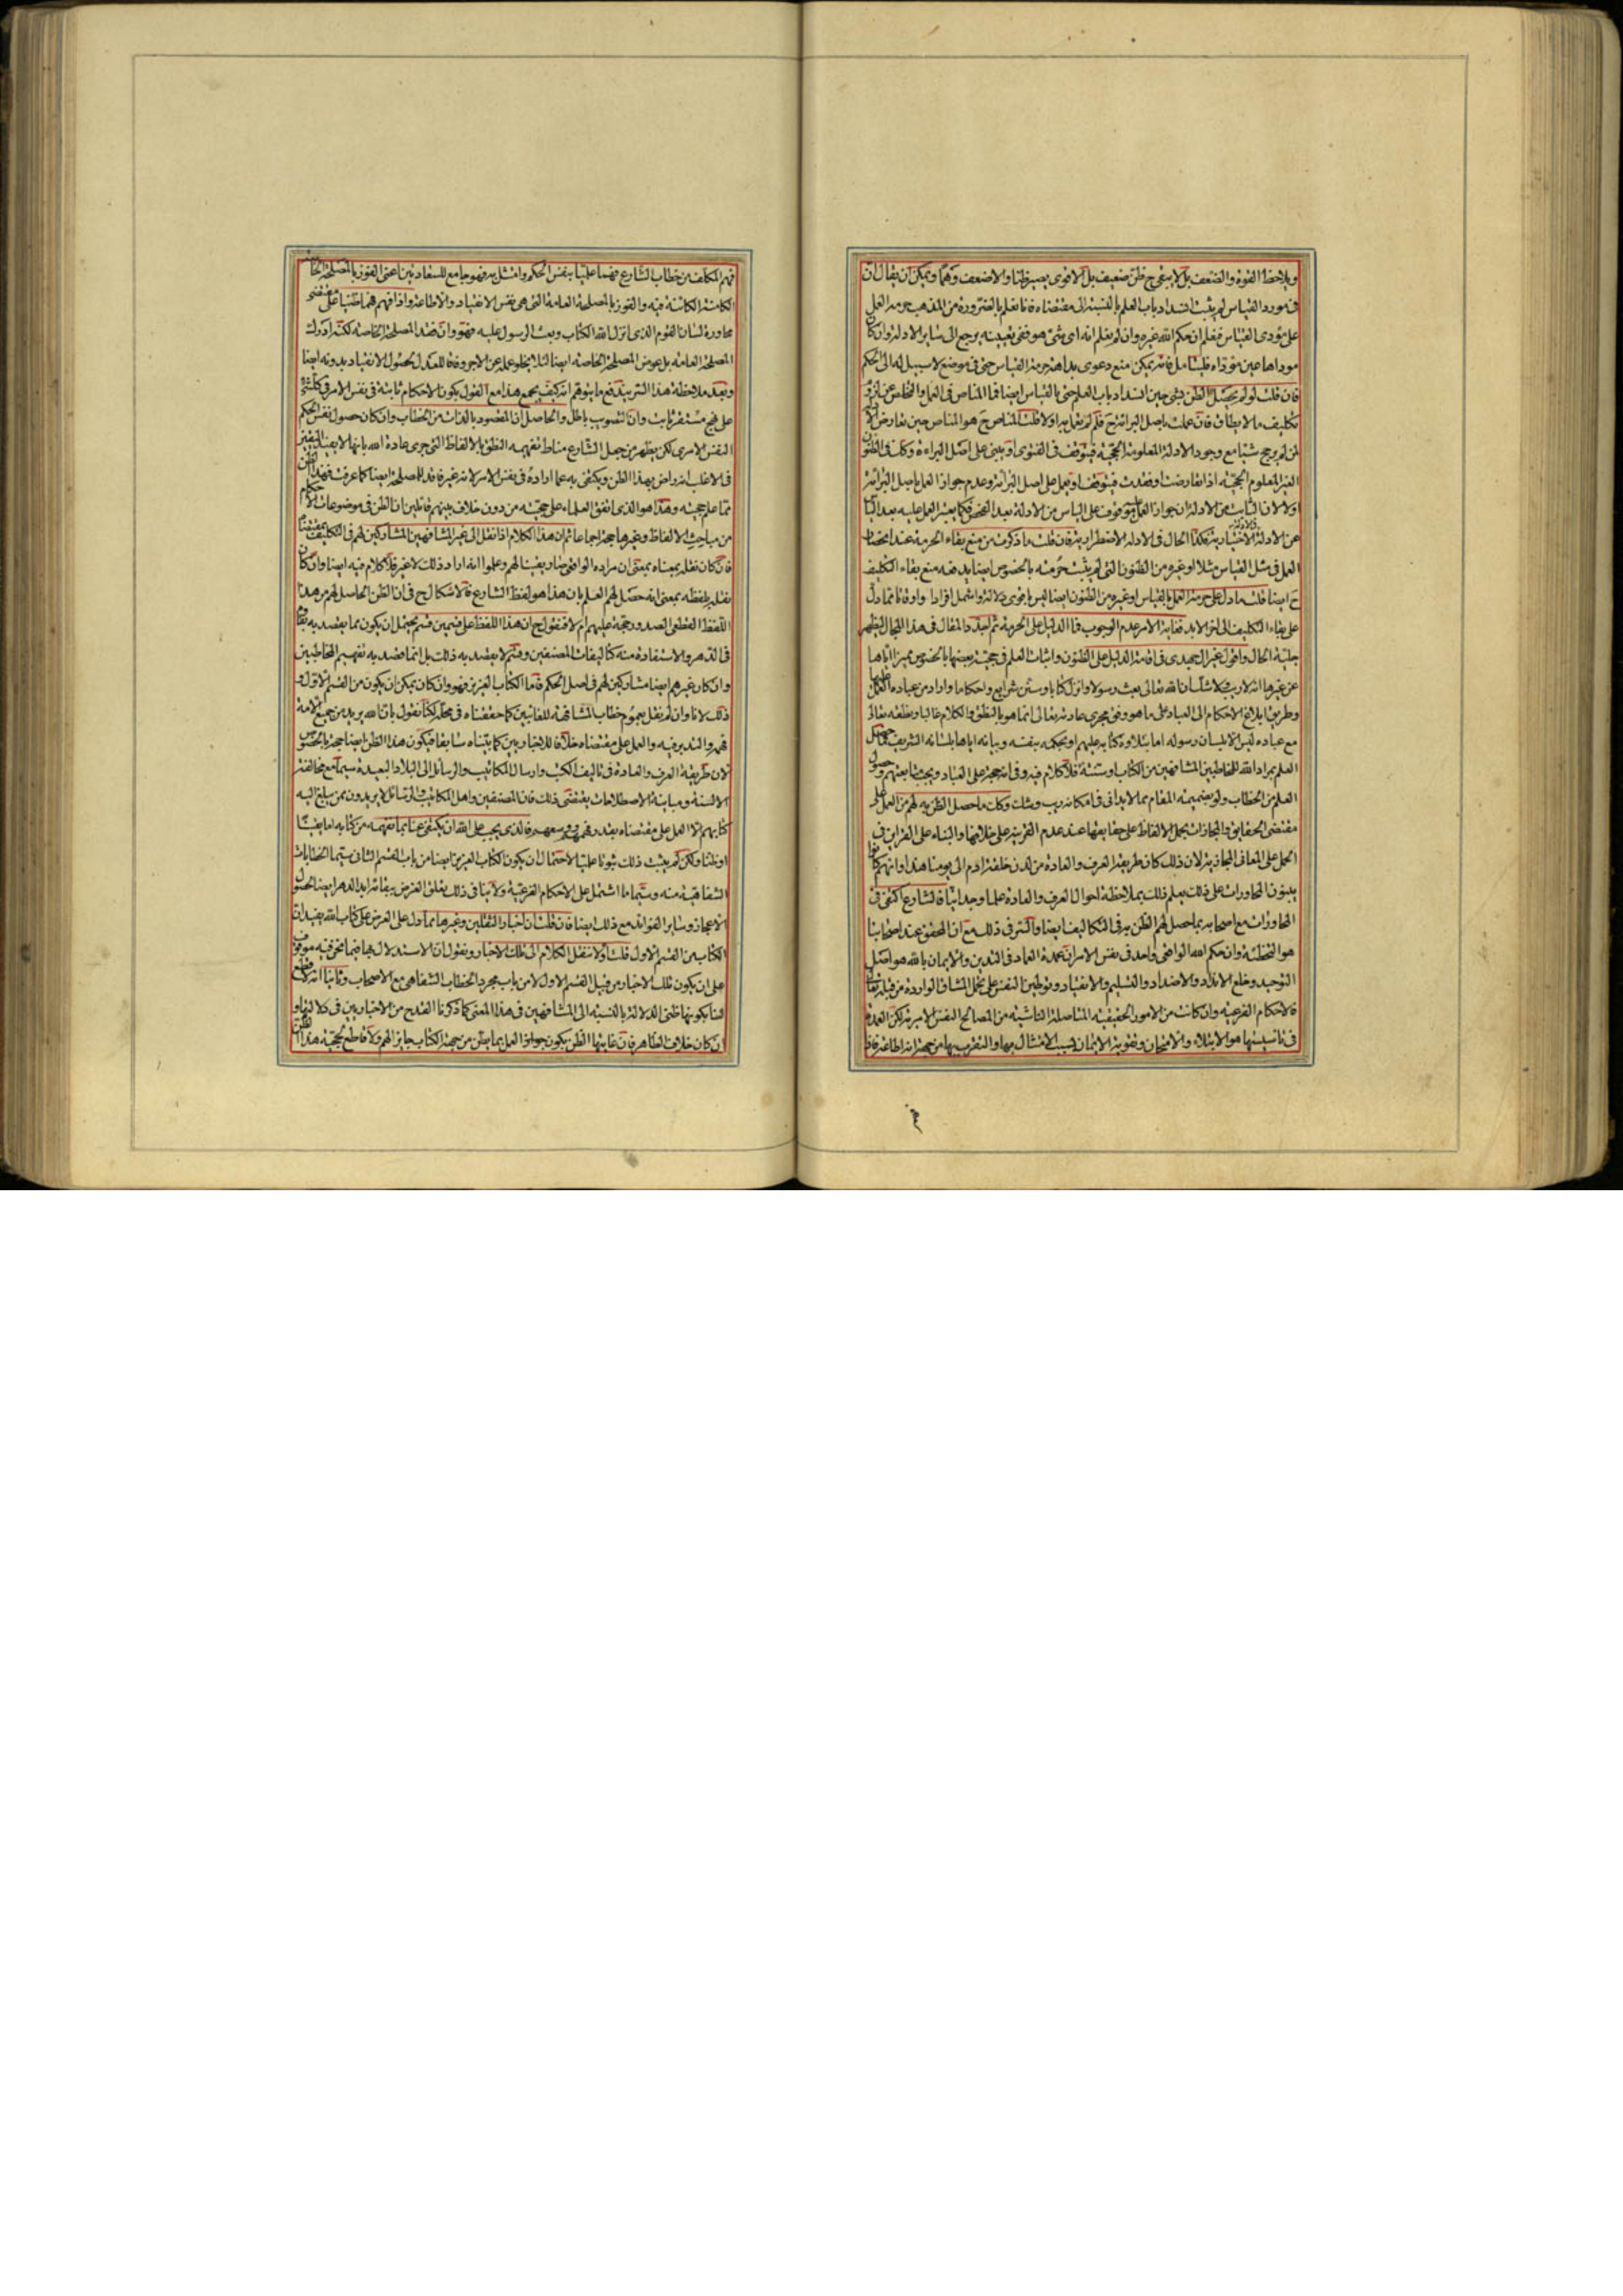 ويلاحظ القوة والضعف بل لا يبقى ح ظن ضعيف بل الاقوى يصير ظنا والاضعف وهما ويمكن ان يقال ان
فى مورد القياس لم يثبت انسداد باب العلم بالنسبة الى مقتضاه فانا نعلم بالضرورة من المذهب حرمة العمل
على مؤدى القياس فنعلم ان حكم الله غيره وان لم نعلم انه اى شئ هو ففى تعيينه يرجع الى ساير الادلة وان كان
موداها عين موداه فليتامل فانه يمكن منع دعوى بداهة حرمة القياس حتى فى موضع لا سبيل له الى الحكم
فان قلت لو لم يحصل الظن بشئ حين انسداد باب العلم حتى بالقياس ايضا فما المناص فى العمل والخلاص عن لزوم
تكليف ما لا يطاق فان عملت باصل البرائة ح فلم لم تعمل به اولا قلت المناص ح هو المناص حين تعارض
لمن لم يرجح شيئا مع وجود الادلة المعلومة الحجية فيتوقف فى الفتوى او يبنى على اصل البراءة وكك فى الظنون
الغير المعلوم الحجية اذا تعارضت او فقدت فيتوقف او يعمل على اصل البرائة وعدم جواز العمل باصل البرائة
اولا لان الثابت من الادلة ان جواز العمل به موقوف على الياس من الادلة بعد الفحص فكما يعتبر العمل عليه بعد الياس
عن الادلة الاختيارية فكذا الحال فى الادلة الاضطرارية فان قلت ما ذكرت من منع بقاء الحرمة عند انحصار
العمل فى مثل القياس مثلا او غيره من الظنون التى لم يثبت حرمته بالخصوص ايضا يدفعه منع بقاء التكليف
ح ايضا قلت ما دل على حرمة العمل بالقياس او غيره من الظنون ايضا ليس باقوى دلالة واشمل افرادا واوقاتا مما دل
على بقاء التكليف الى اخر الابد فغاية الامر عدم الوجوب فما الدليل على الحرمة ثم لنجدد المقال فى هذا المجال ليظهر
جلية الحال واقول غير الـ فى اقامة الدليل على الظنون واثبات العلم فى حجية بعضها بالخصوص مميزا اياها
عن غيرها انه لا ريب ولا شك ان الله تعالى بعث رسولا وانزل كتابا وسن شرايع واحكاما واراد من عباده العمل عليها
وطريق ابلاغ الاحكام الى العباد على ما هو وفق مجرى عادته تعالى انما هو بالنطق والكلام غالبا ونطقه تعالى
مع عباده ليس الا بلسان رسوله اما بتلاوة كتابه عليهم او بحكمه بنفسه وبيانه اياها بلسانه الشريف فما حصل
العلم بمراد الله للمخاطبين المشافهين من الكتاب او سنته فلا كلام فيه وفى انه حجة على العباد ويجب متابعتهم وحصول
العلم من الخطاب ولو بضميمة المقام مما لا يدانى فى امكانه ريب وشك وكك ما حصل الظن به لهم من العمل على
مقتضى الحقايق والمجازات بحمل الالفاظ على حقايقها عند عدم القرينة على خلافها والبناء على القراين فى
الحمل على المعانى المجازية لان ذلك كان طريقة العرف والعادة من لدن خلقة ادم الى يومنا هذا وانهم كانوا
يبنون المحاورات على ذلك يعلم ذلك بملاحظة احوال العرف والعادة علما وجدانيا فالشارع اكتفى فى
المحاورات مع اصحابه بما حصل لهم الظن به فى التكاليف ايضا والسر فى ذلك مع ان المحقق عند اصحابنا
هو التخطئة وان حكم الله الواقعى واحد فى نفس الامر ان عمدة العماد فى التدين والايمان بالله هو اصل
التوحيد وخلع الانداد والاضداد والتسليم والانقياد وتوطين النفس على تحمل المشاق الواردة من قبله تعالى
فالاحكام الفرعية وان كانت من الامور الحقيقية المتاصلة الناشية من المصالح النفس الامرية لكن العمدة
فى تاسيسها هو الابتلاء والامتحان وتقوية الايمان بسبب الامتثال بها والتقرب بها من جهة انه اطاعة فاذا
فهم المكلف من خطاب الشارع فهما علميا بنفس الحكم وامتثل به فهو جامع للسعادتين اعنى الفوز بالمصلحة الخاصة
الكامنة الكائنة فيه والفوز بالمصلحة العامة التى هى نفس الانقياد والاطاعة واذا فهم فهما ظنيا على مقتضى
محاورة لسان القوم الذى انزل الله الكتاب وبعث الرسول عليه فهو وان فقد المصلحة الخاصة لكنه ادرك
المصلحة العامة بل عوض المصلحة الخاصة ايضا لئلا يخلو عمله عن الاجر وفاقا للعدل لحصول الانقياد بدونه ايضا
وبعد ملاحظة هذا السر يندفع ما يتوهم انه كيف يجمع هذا مع القول بكون الاحكام ثابتة فى نفس الامر فى كل شئ
على نهج مستقر ثابت وان التصويب باطل والحاصل ان المقصود بالذات من الخطاب وان كان حصول نفس الحكم
النفس الامرى لكن يظهر من جعل الشارع مناط تفهيمه النطق بالالفاظ التى جرى عادة الله بانها لا يفيد اليقين
فى الاغلب انه راض بهذا الظن ويكتفى به عما اراده فى نفس الامر لانه غير فاقد للمصلحة ايضا كما عرفت فهذا الظن
مما علم حجيته وهذا هو الذى اتفق العلماء على حجيته من دون خلاف بينهم قائلين ان الظن فى موضوعات الاحكام
من مباحث الالفاظ وغيرها حجة اجماعا ثم ان هذا الكلام اذا نقل الى غير المشافهين المشاركين لهم فى التكليف بمقتضاه
فان كان نقله بمعناه بمعنى ان مراده الواقعى صار يقينا لهم وعلموا انه اراد ذلك لا غير فلا كلام فيه ايضا وان كان
نقله بلفظه بمعنى انه حصل لهم العلم بان هذا هو لفظ الشارع فلا اشكال ح فى ان الظن الحاصل لهم من هذا
اللفظ القطعى الصدور حجة عليهم ام لا فنقول ح ان هذا اللفظ على قسمين قسم يحتمل ان يكون مما يقصد به بقاؤه
فى الدهر والاستفادة منه كتاليفات المصنفين وقسم لا يقصد به ذلك بل انما قصد به تفهيم المخاطبين
وان كان غيرهم ايضا مشاركين لهم فى اصل الحكم فاما الكتاب العزيز فهو وان كان يمكن ان يكون من القسم الاول و
ذلك لانا وان لم نقل بعموم خطاب المشافهة للغائبين كما حققناه فى محله لكنا نقول بان الله يريد من جميع الامة
فهمه والتدبر فيه والعمل على مقتضاه خلافا للاخباريين كما بيناه سابقا فيكون هذا الظن ايضا حجة بالخصوص
لان طريقة العرف والعادة فى تاليف الكتب وارسال المكاتيب والرسائل الى البلاد البعيدة سيما مع مخالفة
الالسنة ومباينة الاصطلاحات يقتضى ذلك فان المصنفين واهل المكاتيب والرسائل لا يريدون ممن سيبلغ اليه
كتابهم الا العمل على مقتضاه بقدر فهمهم وسعهم فالذى يجب على الله ان يكتفى عنا بما نفهمه من كتابه اما يقينا
او ظنا ولكن لم يثبت ذلك ثبوتا علميا لاحتمال ان يكون الكتاب العزيز ايضا من باب القسم الثانى سيما الخطابات
الشفاهية منه وسيما ما اشتمل على الاحكام الفرعية ولا ينافى ذلك تعلق الغرض ببقائه ابد الدهر ايضا لحصول
الاعجاز وساير الفوائد مع ذلك ايضا فان قلت ان اخبار الثقلين وغيرها مما دل على العرض على كتاب الله يفيد ان
الكتاب من القسم الاول قلت اولا ننقل الكلام الى تلك الاخبار ونقول ان الاستدلال بها فيما نحن فيه موقوف
على ان يكون تلك الاخبار من قبيل القسم الاول لا من باب مجرد الخطاب الشفاهى مع الاصحاب وثانيا انه لا قطع
لنا بكونها ظنى الدلالة بالنسبة الى المشافهين فى هذا المعنى كما ذكرنا القدح من الاخباريين فى دلالتها و
ان كان خلاف الظاهر فان غايتها الظن بكون جواز العمل بما يظن من جهة الكتاب جايزا لهم ولا قاطع بحجية هذا الظن